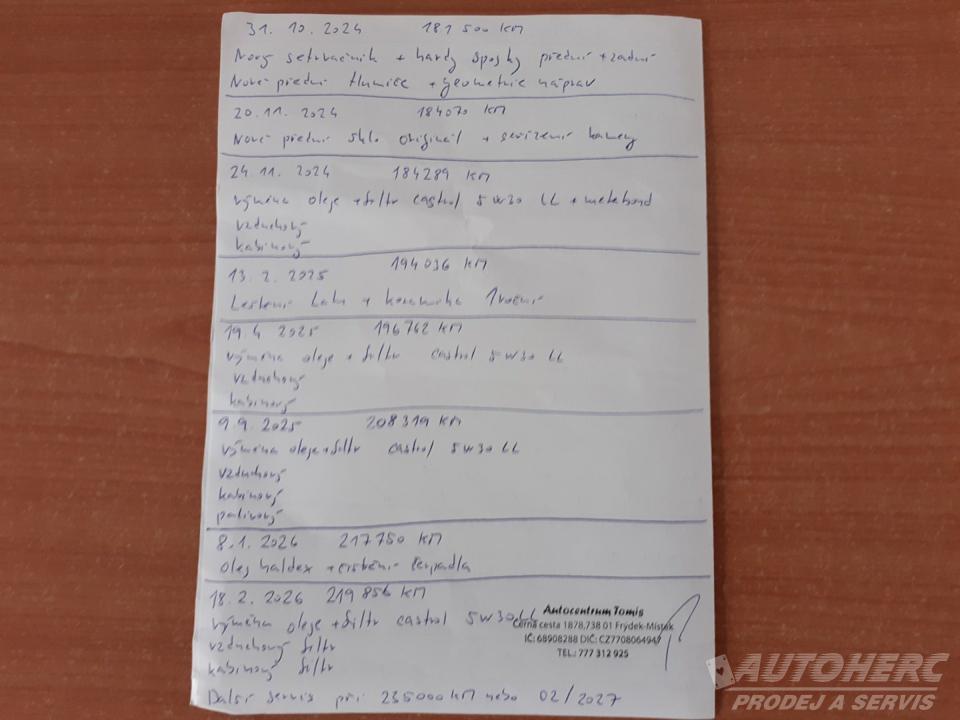 31. 10. 2024 181 500 KM
Nový setrvačník + hardy spojky přední + zadní
Nové přední tlumiče + geometrie náprav
20. 11. 2024 184070 KM
Nové přední sklo originál + seřízení kamery
24. 11. 2024 184289 KM
výměna oleje + filtr castrol 5w30 LL + metabond
vzduchový
kabinový
13. 2. 2025 194036 KM
Leštění Laku + keramika 1 roční
19. 4 2025 196762 KM
výměna oleje + filtr castrol 5w30 LL
vzduchový
kabinový
9. 9. 2025 208319 KM
výměna oleje + filtr castrol 5w30 LL
vzduchový
kabinový
palivový
8. 1. 2026 217750 KM
olej haldex + čištění čerpadla
18. 2. 2026 219 856 KM
výměna oleje + filtr castrol 5w30 LL
vzduchový filtr
kabinový filtr
Další servis při 235000 KM nebo 02/2027
Autocentrum Tomis
Černá cesta 1878,738 01 Frýdek-Místek
IČ: 68908288 DIČ: CZ7708064947
TEL.: 777 312 925
AUTOHERC
PRODEJ A SERVIS